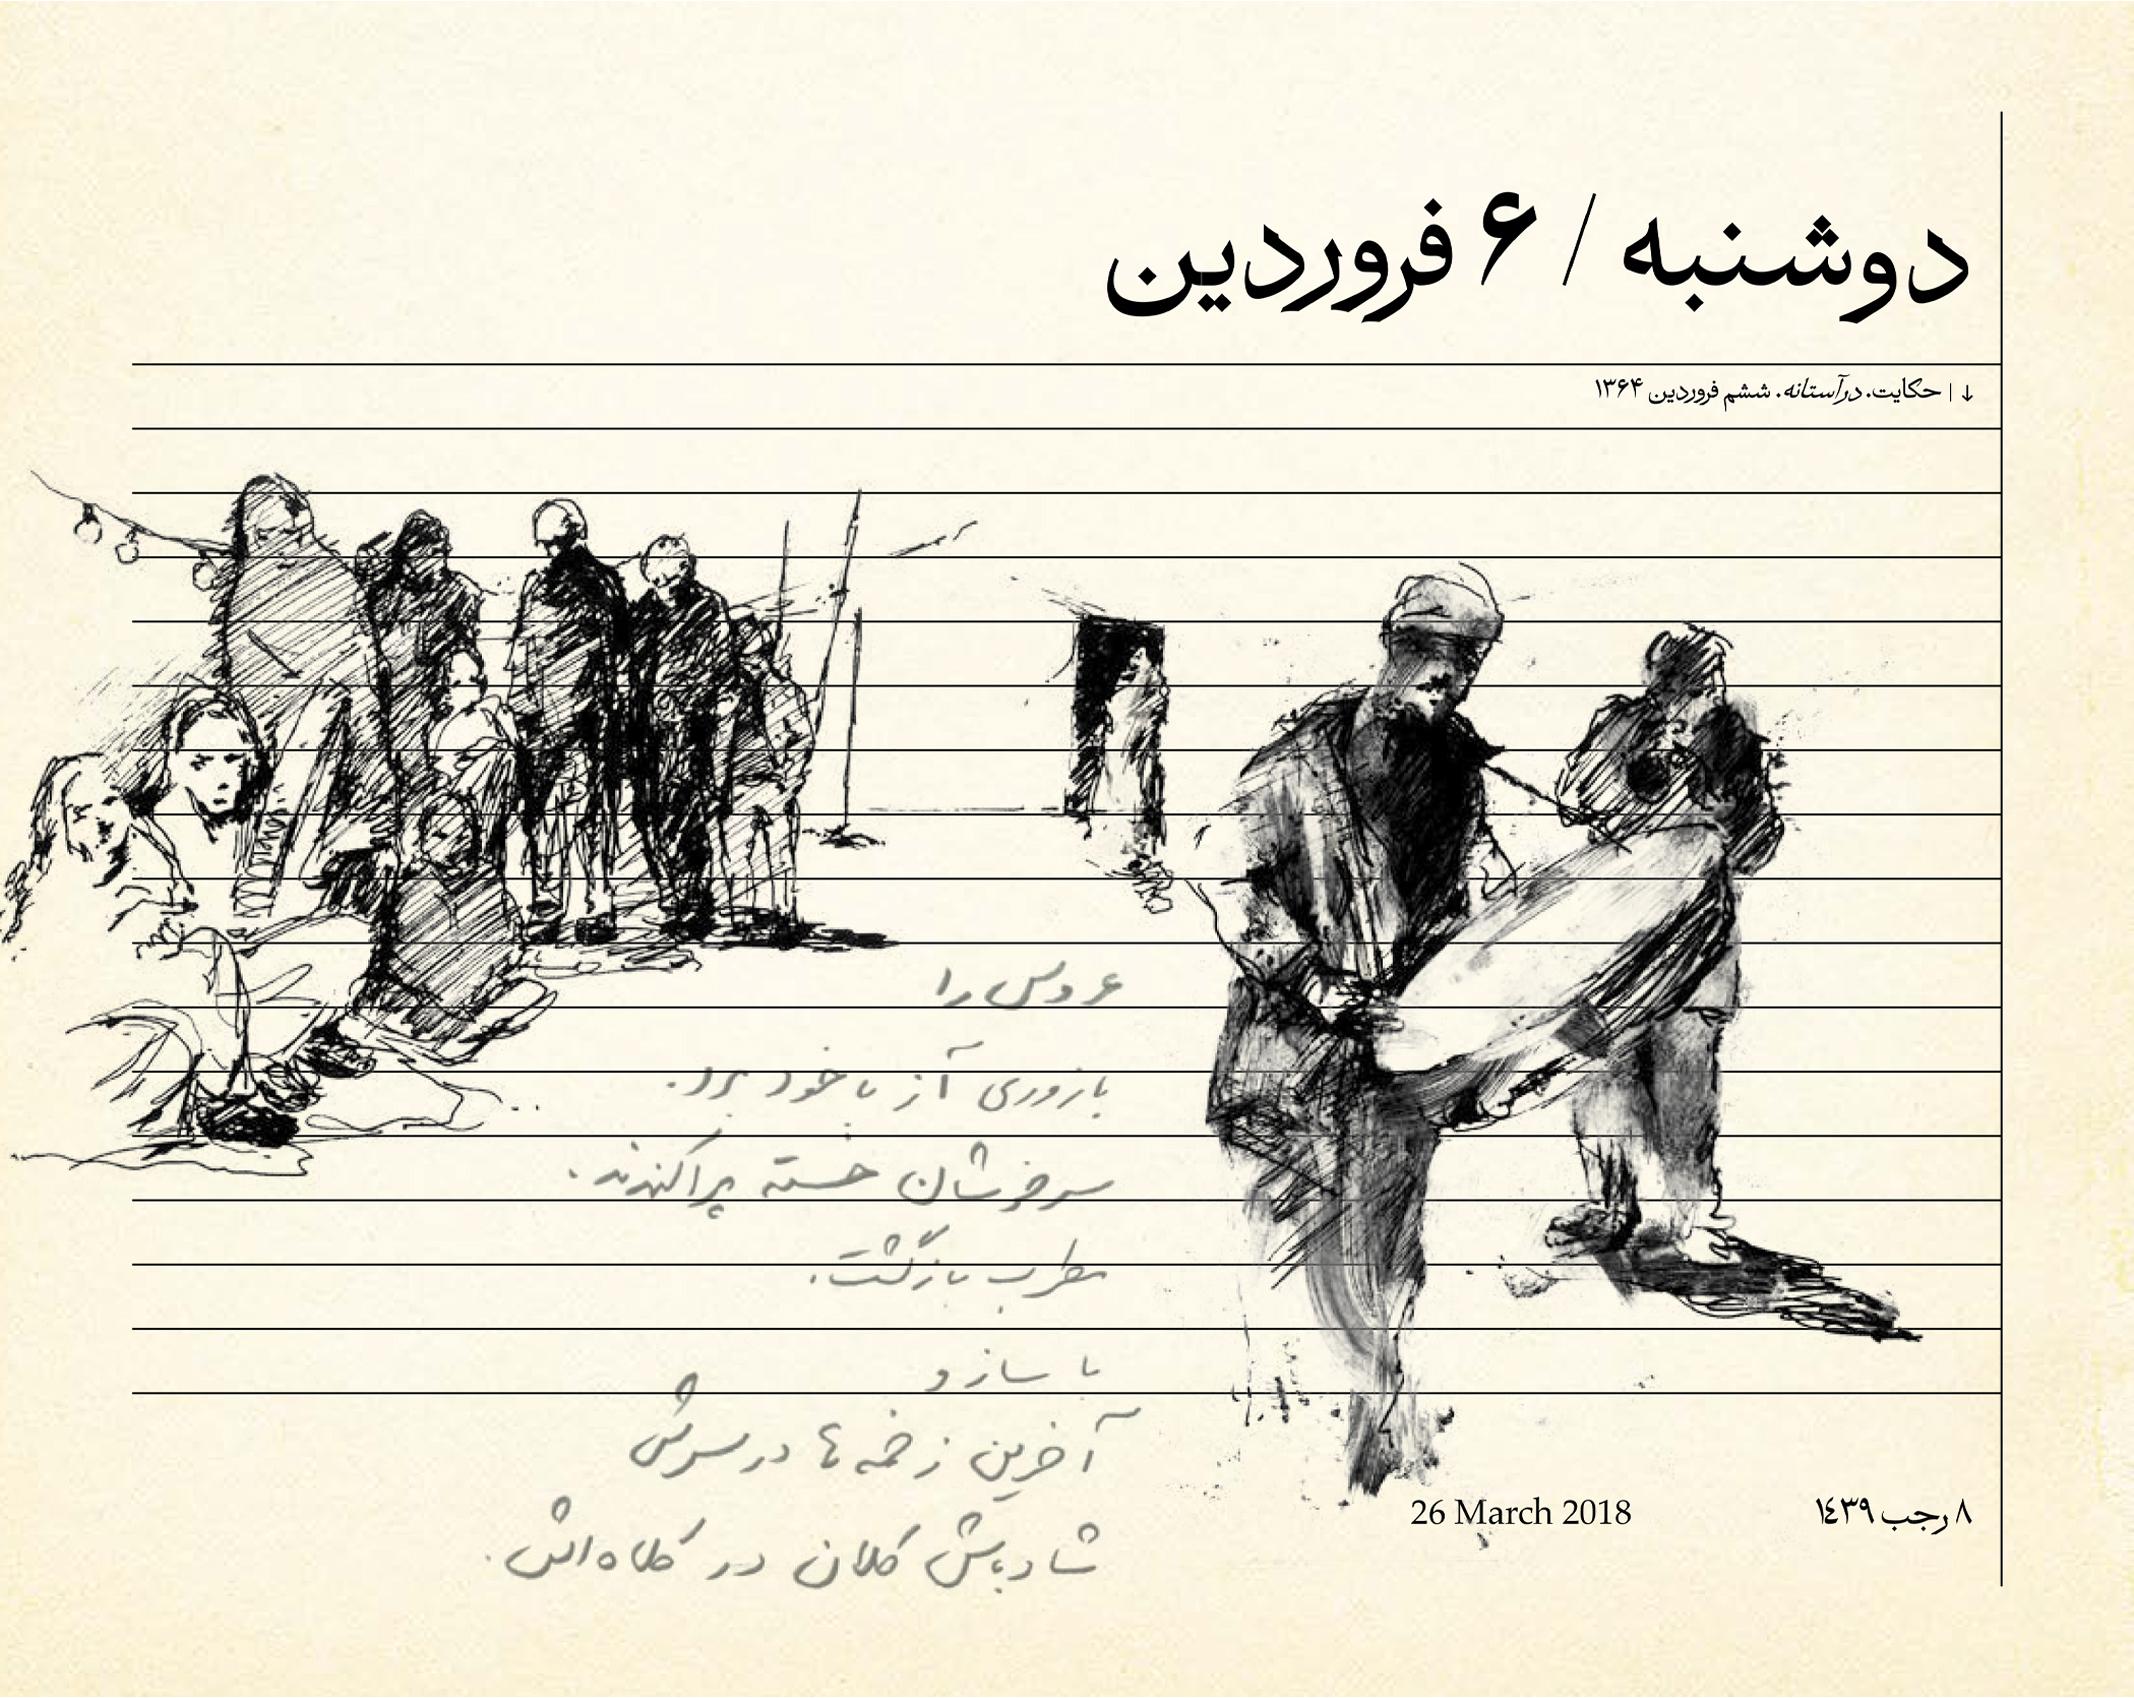 دوشنبه / ۶ فروردین
↓ | حکایت. در آستانه. ششم فروردین ۱۳۶۴
عروس را
بازوری آز با خود برد.
سرخوشان خسته پراکندند.
مطرب بازگشت.
با ساز و
آخرین زخمه‌ها در سرش
شاباش کلان در کلاه‌اش.
26 March 2018
۸ رجب ۱٤۳۹